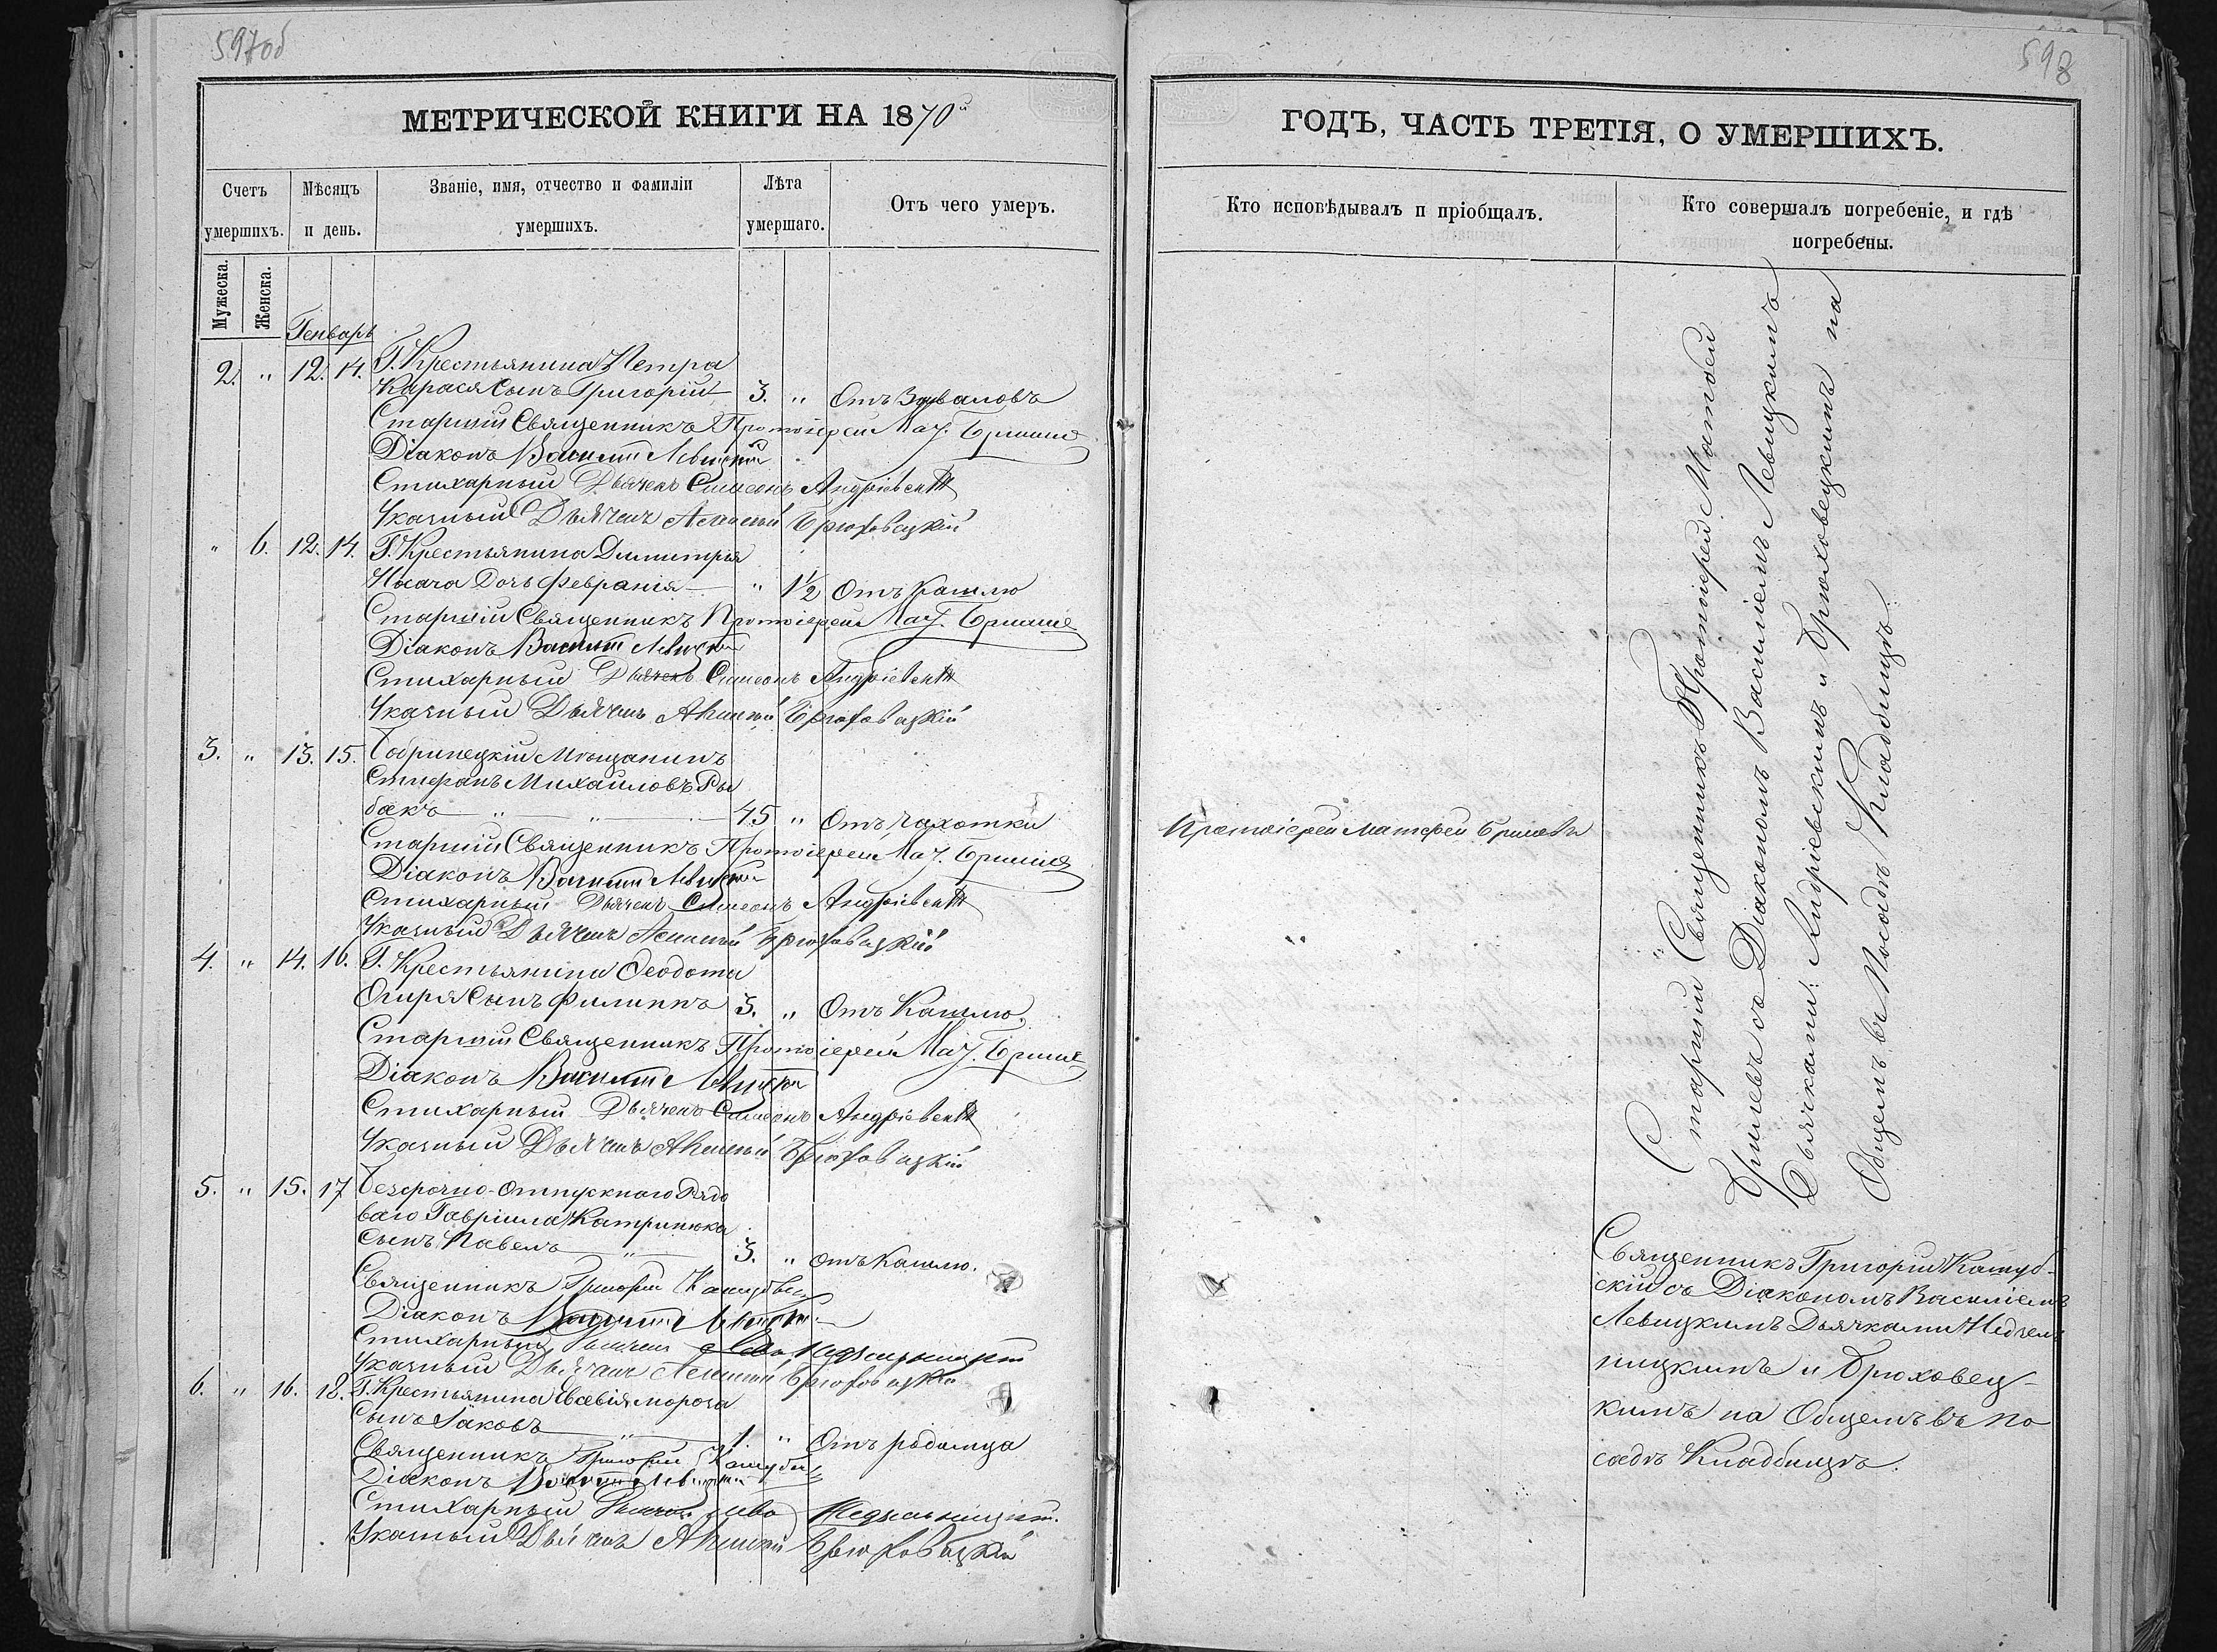 597об
МЕТРИЧЕСКОЙ КНИГИ НА 1870й
Счетъ умершихъ.
Мѣсяцъ и день.
Званіе, имя, отчество и фамиліи умершихъ.
Лѣта умершаго.
Отъ чего умеръ.
Мужеска.
Женска.
Генварь
2. " 12. 14. Г. Крестьянина Петра
Карася Сынъ Григорій 3. "
Старшій Священникъ Протоіерей Мат.
Діаконъ Василій Левицкій
Стихарный Дьячекъ Симеонъ Андріевскій
Указный Дьячекъ Брюховецкій
" 6. 12. 14. Г. Крестьянина Димитрія
Дочь Февранія " 1½ Отъ Кашлю
Старшій Священникъ Протоіерей Мат.
Діаконъ Василій Левицкій
Стихарный Дьячекъ Симеонъ Андріевскій
Указный Дьячекъ Брюховецкій
3. " 13. 15. Бобринецкій Мѣщанинъ
Стефанъ Михаиловъ Ры
бакъ " " 45 " Отъ чахотки
Старшій Священникъ Протоіерей Мат.
Діаконъ Василій Левицкій
Стихарный Дьячекъ Симеонъ Андріевскій
Указный Дьячекъ Брюховецкій
4. " 14. 16. Г. Крестьянина Феодота
Огиря Сынъ Филиппъ 3. " Отъ Кашлю.
Старшій Священникъ Протоіерей Мат.
Діаконъ Василій Левицкій
Стихарный Дьячекъ Симеонъ Андріевскій
Указный Дьячекъ Брюховецкій
5. " 15. 17 Безсрочно-Отпускнаго Рядо
ваго Гавріила Катринюка
Сынъ Павелъ " 3. " отъ Кашлю.
Священникъ Григорій
Діаконъ Василій Левицкій
Стихарный Дьячекъ
Указный Дьячекъ Брюховецкій
6. " 16. 18. Г. Крестьянина Евсевія мороза
Сынъ Іаковъ " 1. " Отъ родимца
Священникъ Григорій
Діаконъ Василій Левицкій
Стихарный Дьячекъ
Указный Дьячекъ Брюховецкій
598
ГОДЪ, ЧАСТЬ ТРЕТІЯ, О УМЕРШИХЪ.
Кто исповѣдывалъ и пріобщалъ.
Кто совершалъ погребеніе, и гдѣ погребены.
Протоіерей Матфей
Старшій Священникъ Протоіерей Матфей
съ Діакономъ Василіемъ Левицкимъ
Дьячками: Андріевскимъ и Брюховецкимъ на
Общемъ въ Посадѣ Кладбищѣ.
Священникъ Григорій Кашуб-
скій съ Діакономъ Василіемъ
Левицкимъ Дьячками Недзель
ницкимъ и Брюховец-
кимъ на Общемъ въ По
садѣ Кладбищѣ.